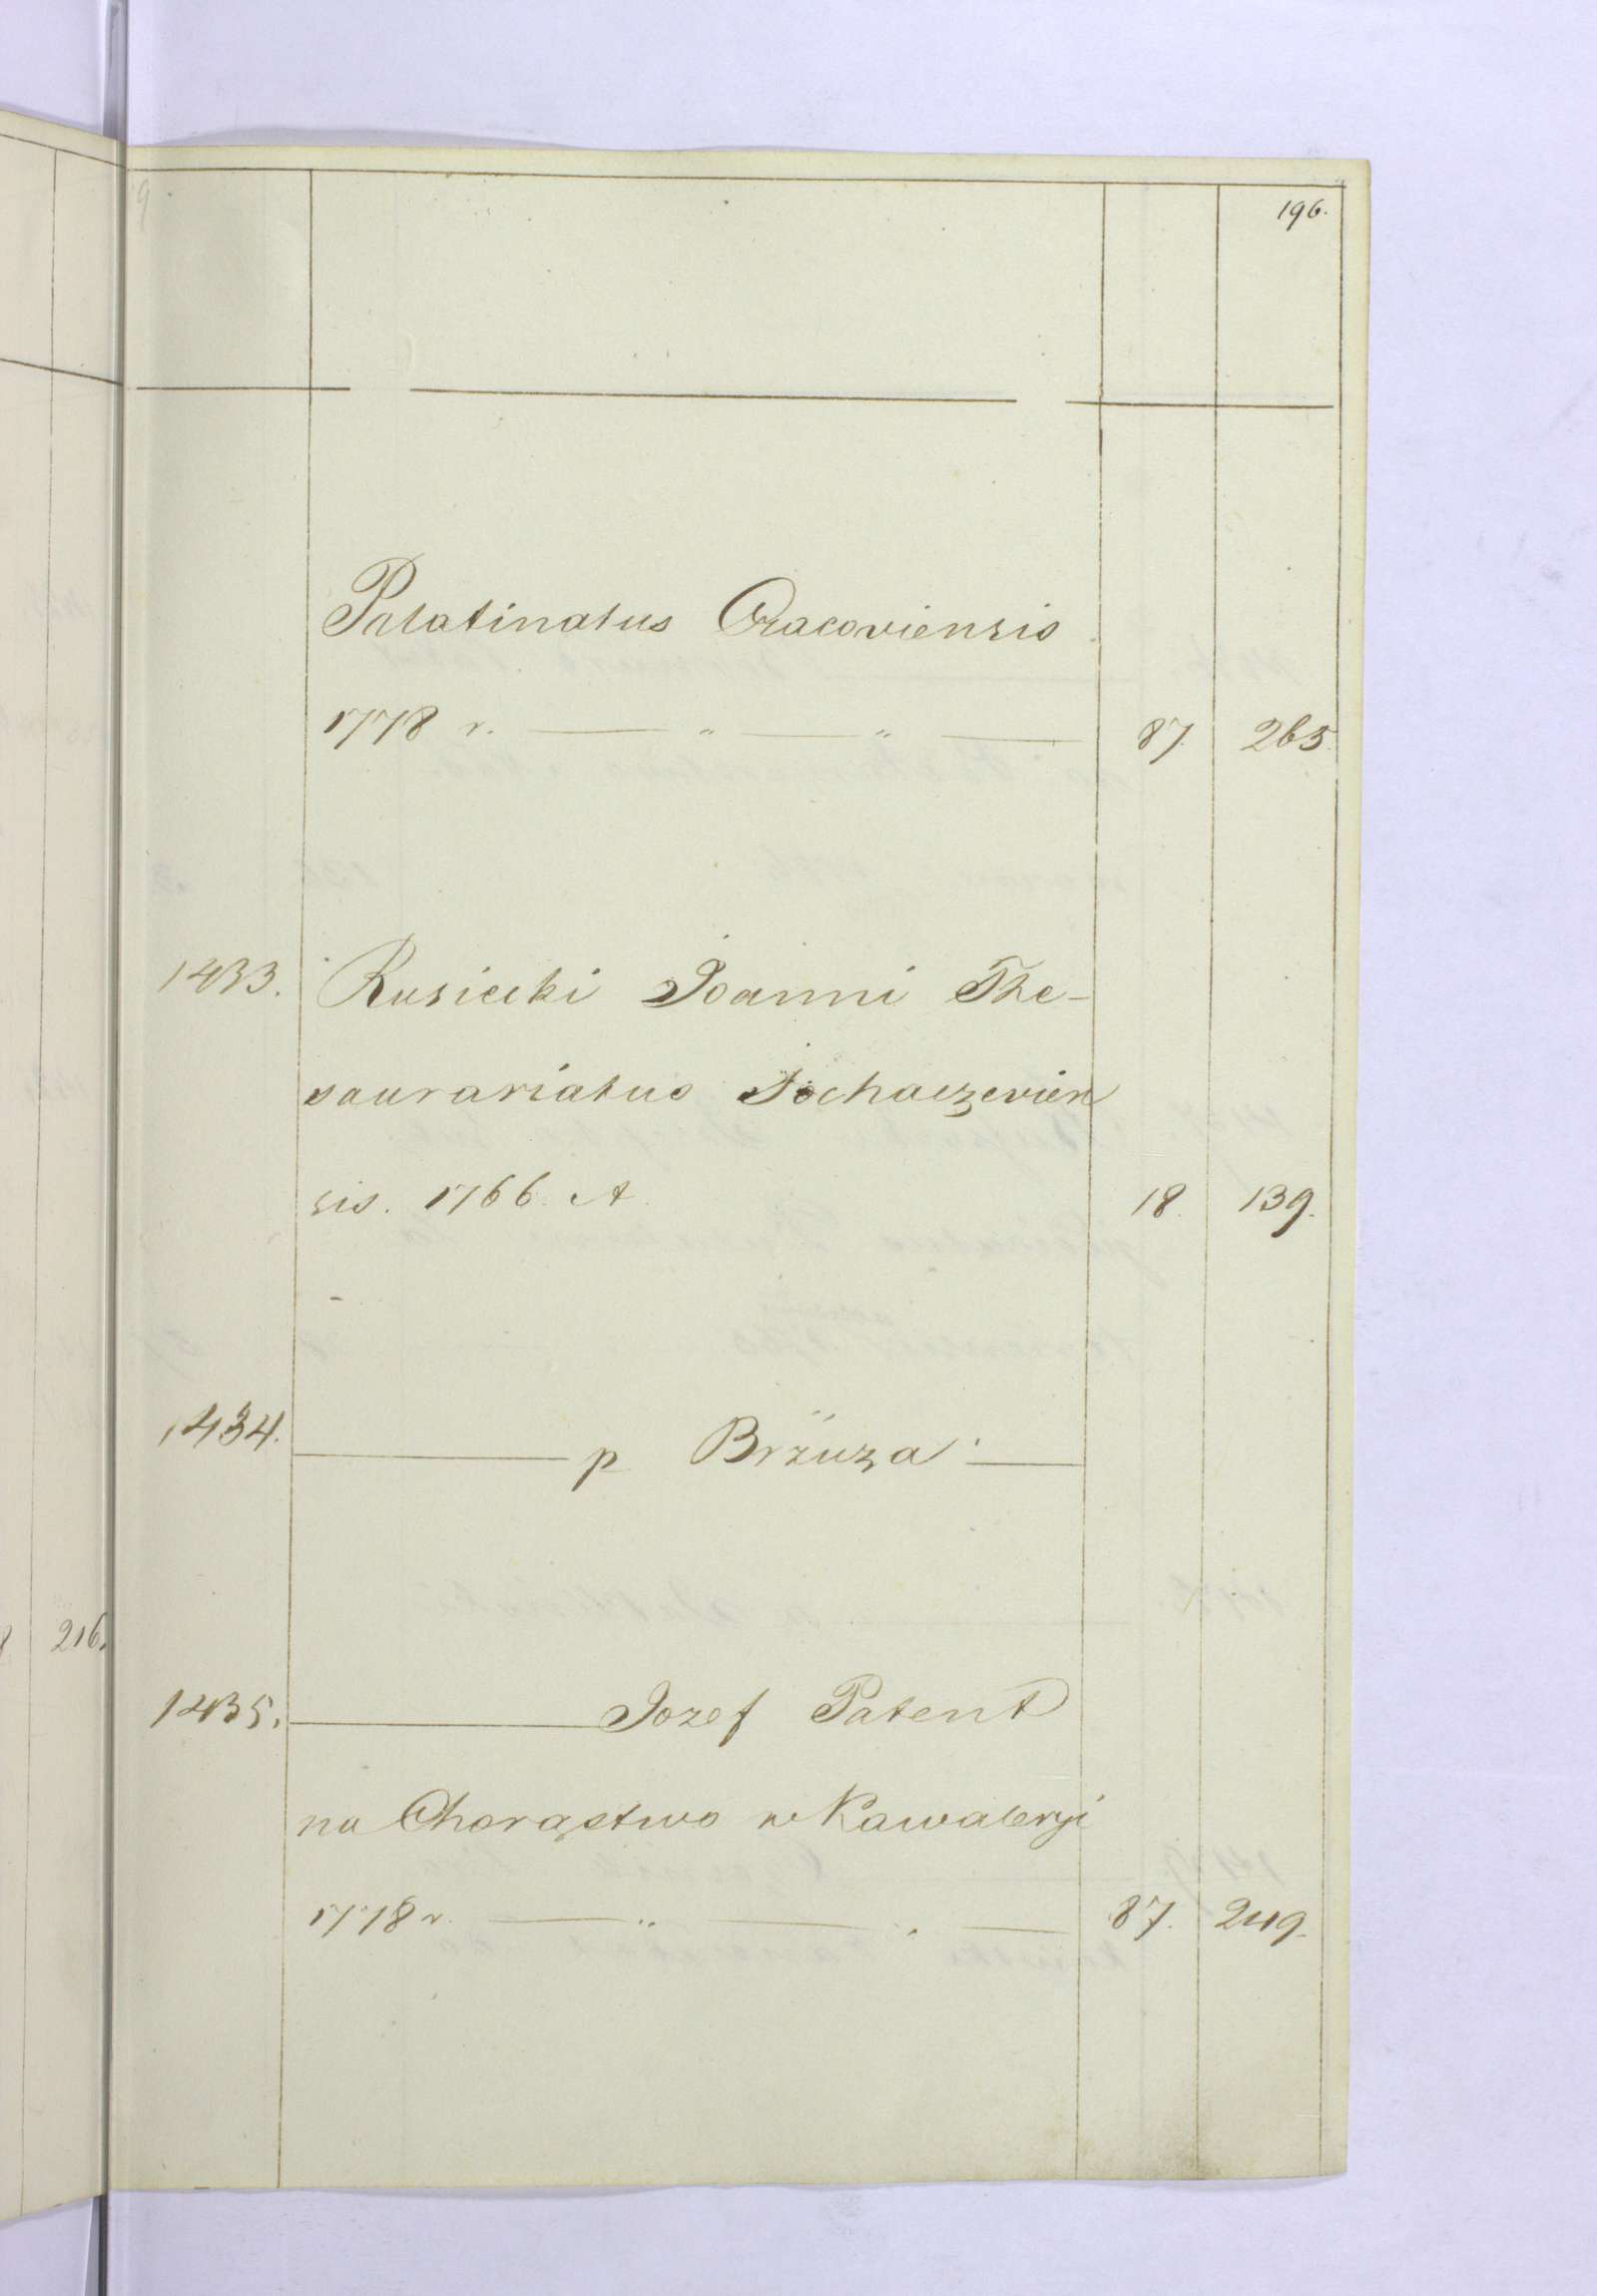 196.
Palatinatus Cracoviensis
1778 r. — " — " — 87. 265.
1433. Rusiecki Joanni The-
saurariatus Sochaczevien
sis. 1766. A 18. 139.
1434. — p Brzuza —
1435. — Jozef Patent
na Chorąstwo w Kawaleryi
1778 r. — " — " — 87. 249.
216.